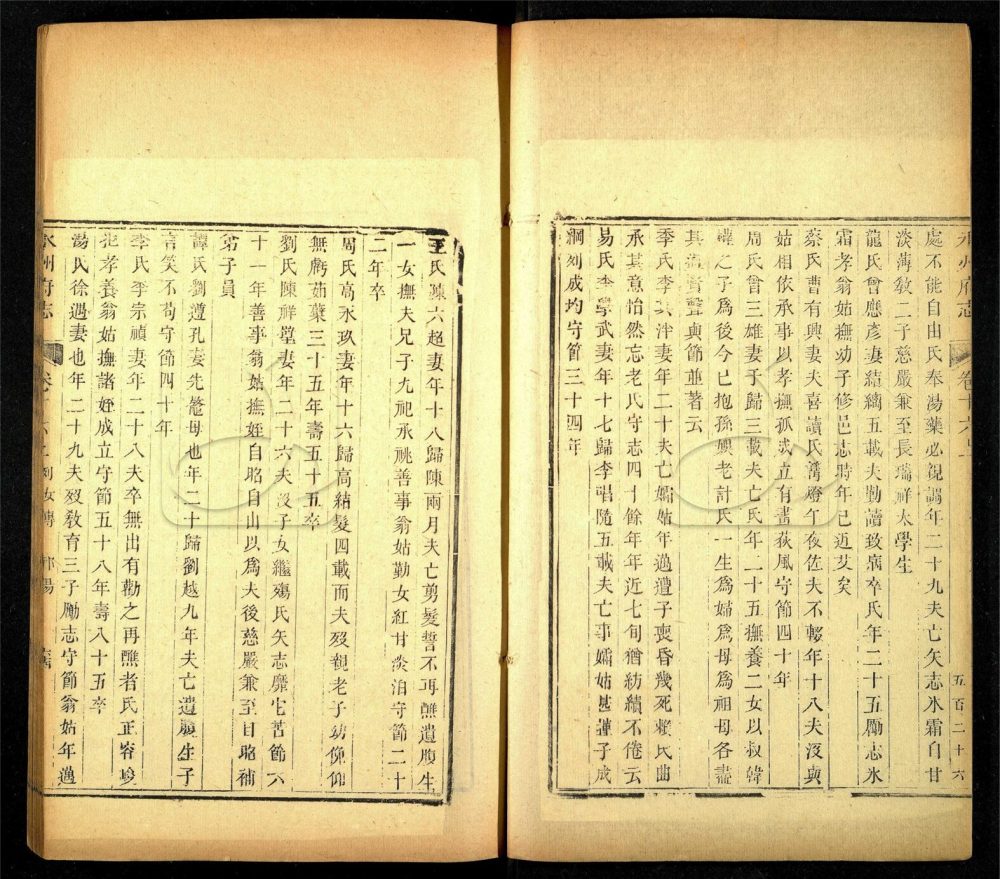 永州府志 卷十六上 五百二十六
處不能自由氏奉湯藥必視調年二十九夫亡矢志氷霜自甘
淡薄敎二子慈嚴兼至長瑞祥太學生
龍氏曾應彥妻結縭五載夫勤讀致病卒氏年二十五勵志氷
霜孝翁姑撫幼子修邑志時年已近艾矣
蔡氏曹有興妻夫喜讀氏篝燈午夜佐夫不輟年十八夫沒與
姑相依承事以孝撫孤成立有畫荻風守節四十年
周氏曾三雄妻于歸三載夫亡氏年二十五撫養二女以叔韓
緯之子爲後今已抱孫娛老計氏一生爲婦爲母爲祖母各盡
其 賢聲與節並著云
季氏李 泮妻年二十夫亡孀姑年邁遭子喪昏幾死賴氏曲
承其意怡然忘老氏守志四十餘年年近七旬猶紡績不倦云
易氏李學武妻年十七歸李唱隨五載夫亡事孀姑甚謹子成
綱列成均守節三十四年
王氏陳六超妻年十八歸陳兩月夫亡剪髮誓不再醮遺腹生
一女撫夫兄子九祀承祧善事翁姑勤女紅甘淡泊守節二十
二年卒
周氏高永玖妻年十六歸高結髮四載而夫歿親老子幼俯仰
無虧茹蘗三十五年壽五十五卒
劉氏陳祥瑩妻年二十六夫沒子女繼殤氏矢志靡它苦節六
十一年善事翁姑撫姪自昭自山以爲夫後慈嚴兼至自昭補
弟子員
譚氏劉遵孔妻先鼈母也年二十歸劉越九年夫亡遺腹生子
言笑不苟守節四十年
李氏李宗禎妻年二十八夫卒無出有勸之再醮者氏正容峻
拒孝養翁姑撫諸姪成立守節五十八年壽八十五卒
湯氏徐遇妻也年二十九夫歿敎育三子勵志守節翁姑年邁
永州府志 卷十六上 列女傳 祁陽